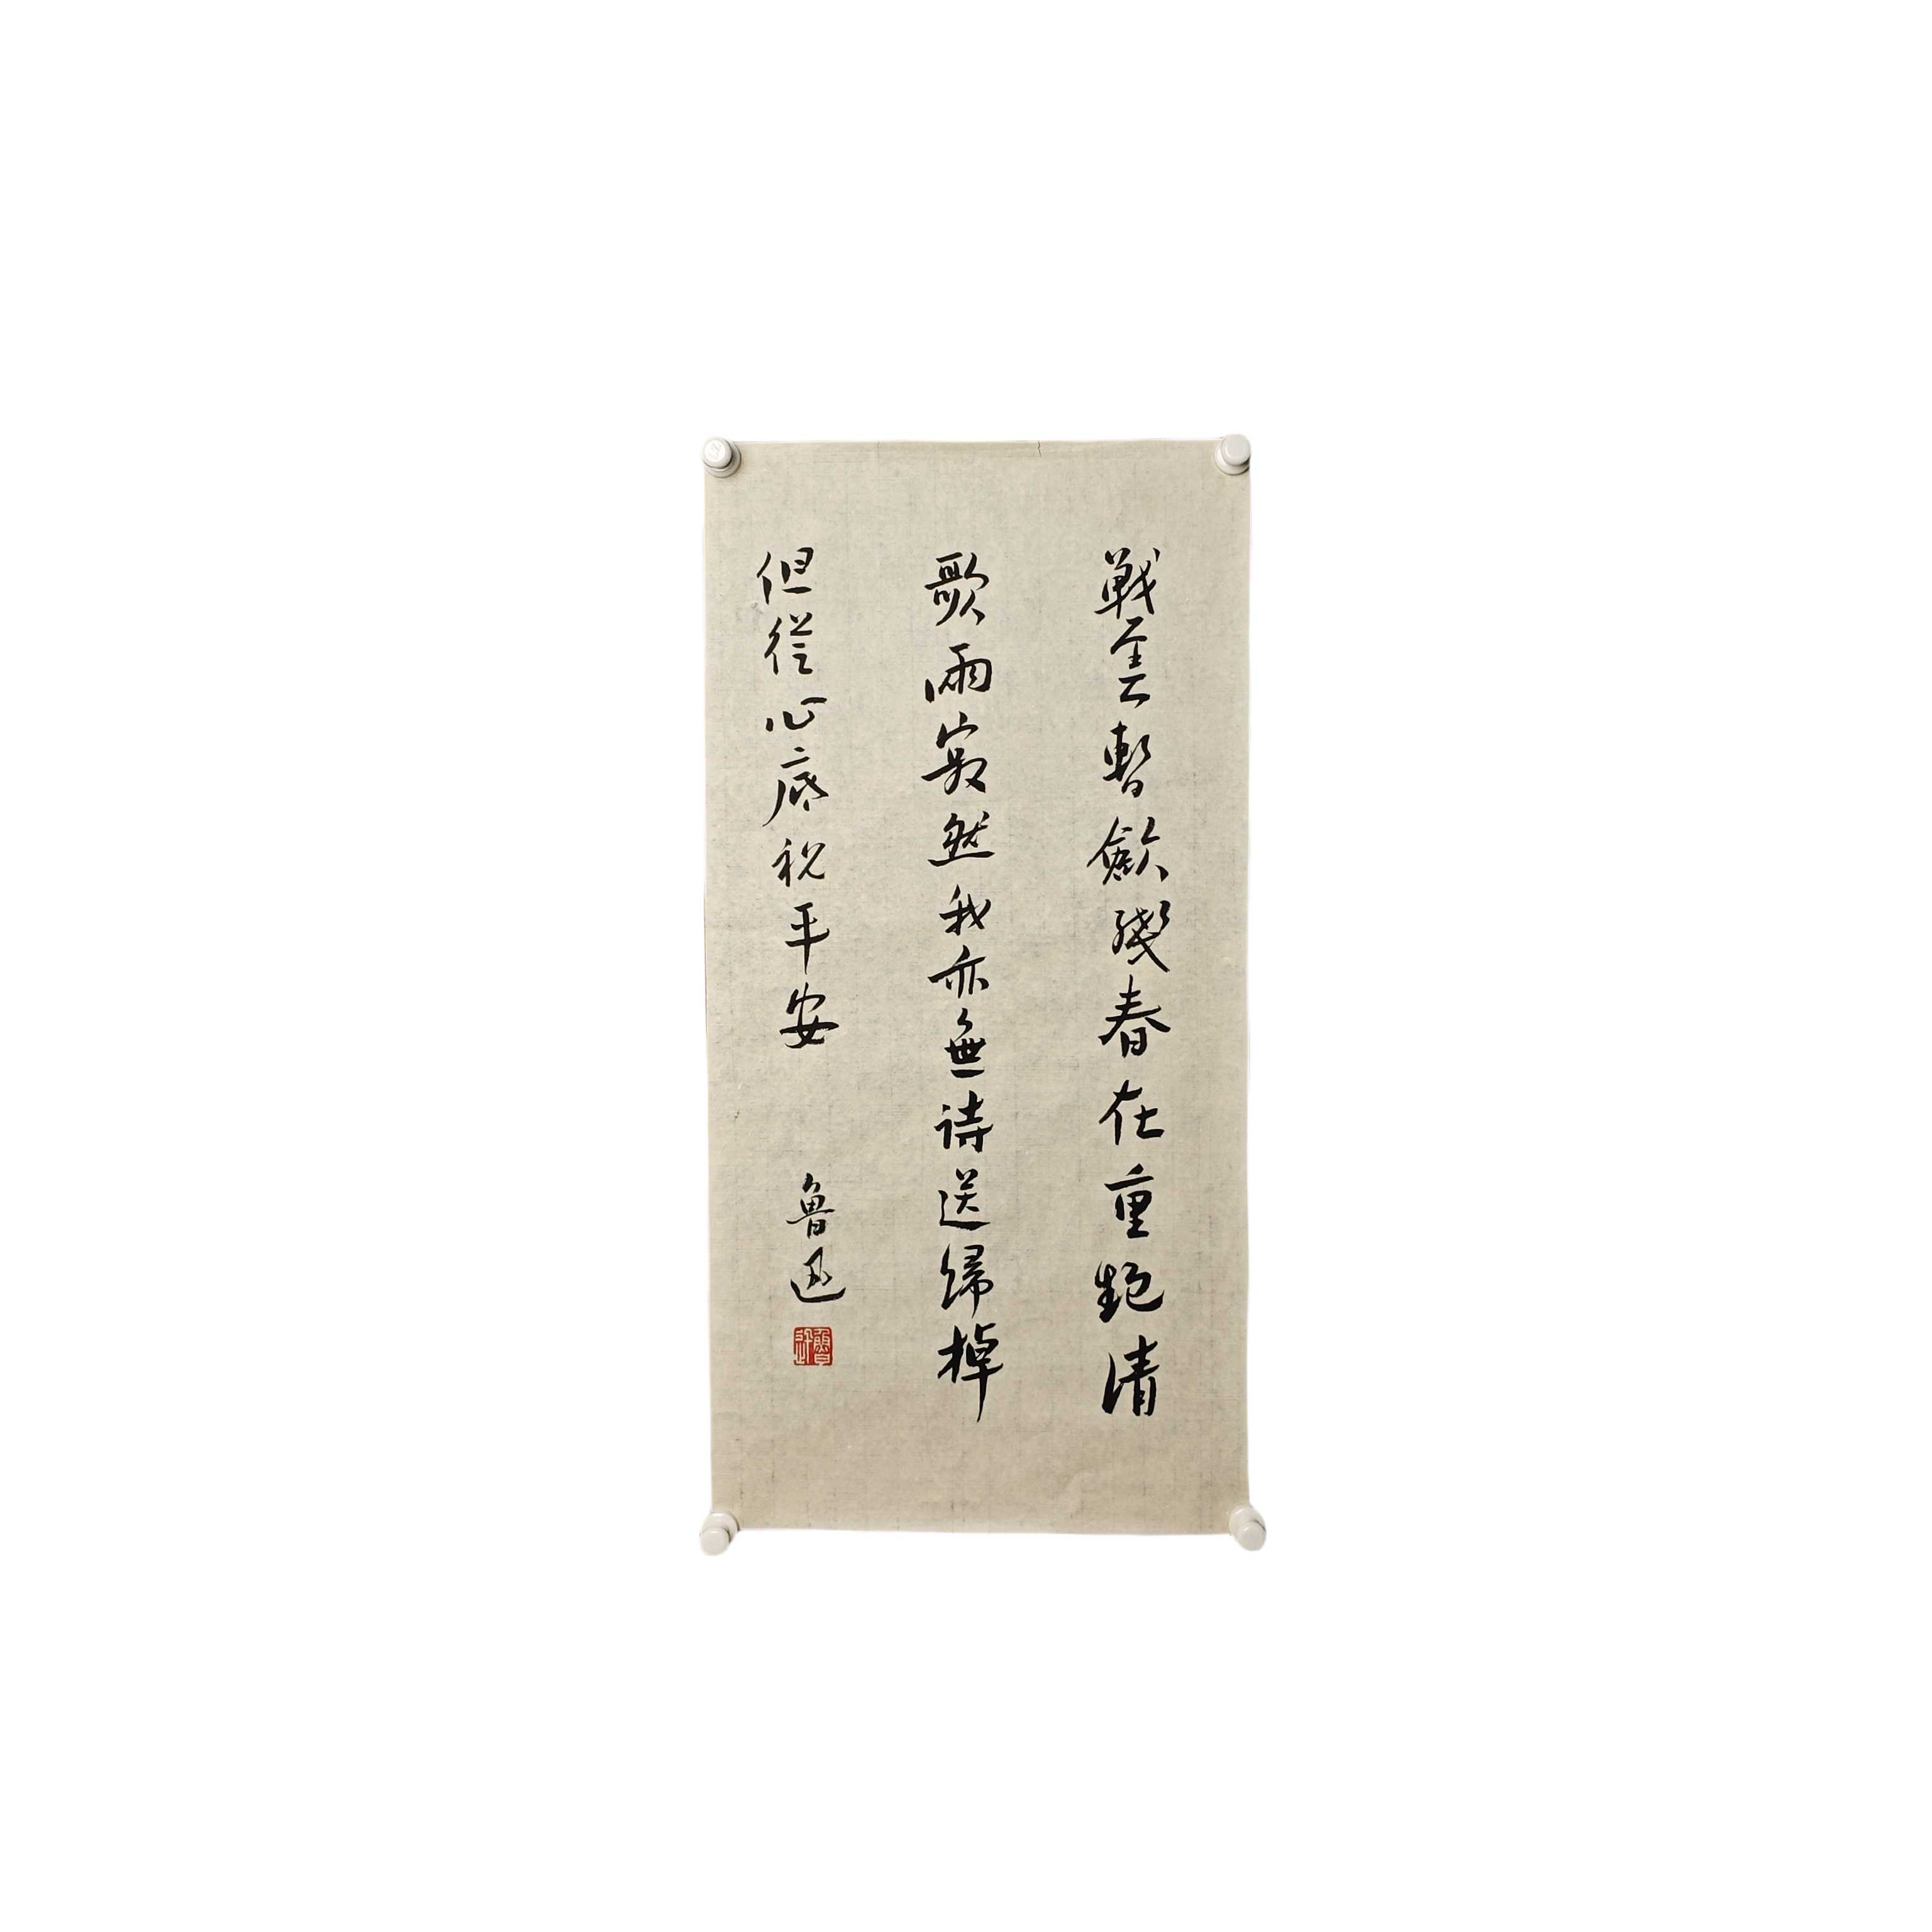 戰雲暫歛殘春在重炮清
歌兩寂然我亦無詩送歸棹
但從心底祝平安 魯迅
魯迅